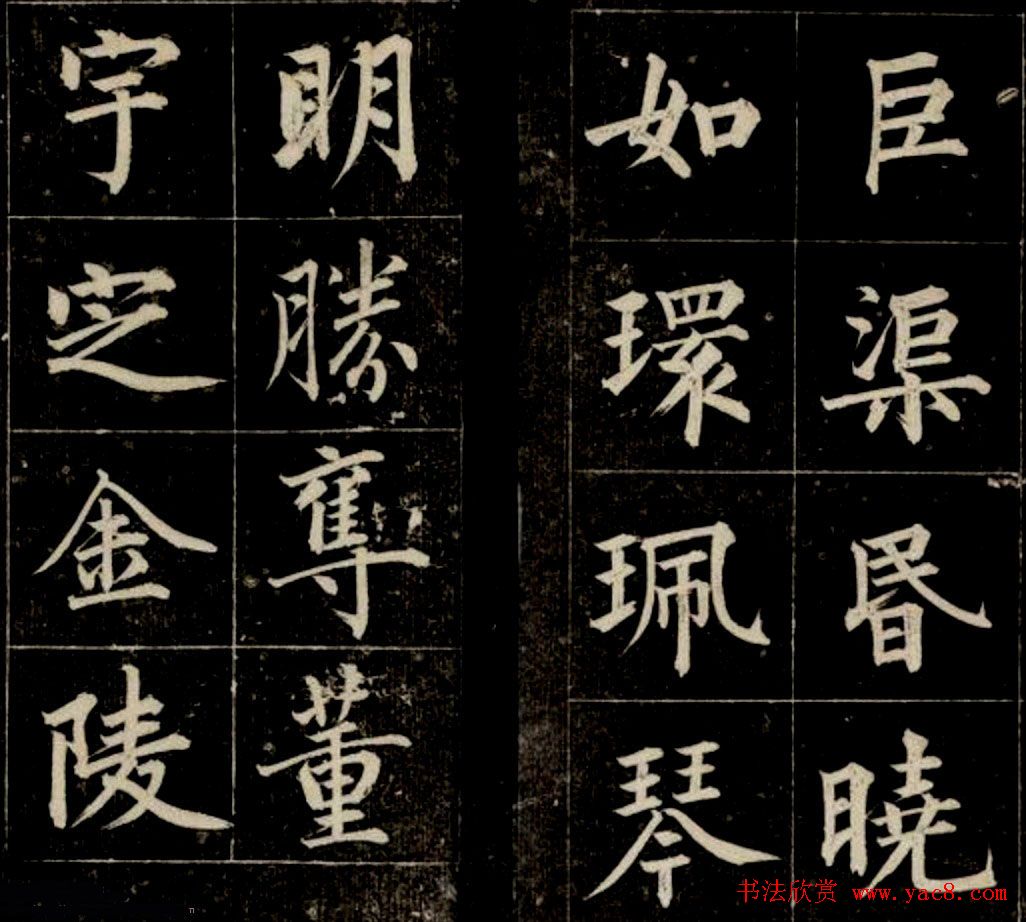 巨渠昬曉
如環珮琴
明勝奪董
宇定金陵
书法欣赏 www.yac8.com